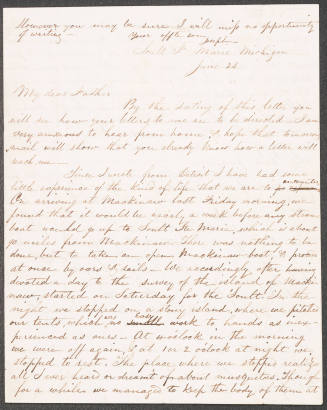 However you may be sure I will miss no opportunity
of writing — Your affte son
Sault St Marie Michigan
June 24
My dear Father
By the dating of this letter you
will see how your letters to me are to be directed. I am
very anxious to hear from home, & hope that tomorrow's
mail will show that you already know how a letter will
reach me —
Since I wrote from Detroit I have had some
little experience of the kind of life that we are to
On arriving at Mackinaw last Friday morning, we
found that it would be nearly a week before any steam
boat would go up to Sault Ste Marie, which is about
90 miles from Mackinaw. There was nothing to be
done, but to take an open Mackinaw boat, & proceed
at once by oars & sails — We accordingly after having
devoted a day to the survey of the island of Macki
naw, started on Saturday for the Sault. In the
night we stopped on a stony island, where we pitched
our tents, which was no easy work to hands as inex-
perienced as ours — At o'clock in the morning
we were off again, & at 1 or 2 o'clock at night we
stopped to rest. The place where we stopped realized
all I ever heard or dreamt of about musquitoes. Though
for a while we managed to keep the body of them at